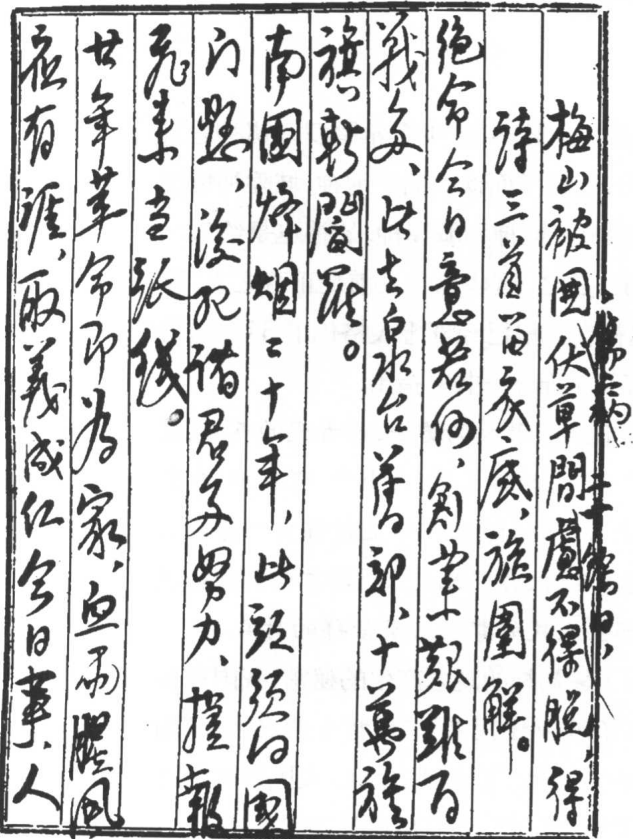 梅山被囲伏草間慮不得脱、得
傷病二十餘日、
詩三首留衣底、旋圍解。
絕命今日意若何、創業艱難百
戰多、此去泉台舊部、十萬旌
旗斬閻羅。
南國烽烟二十年，此頭須向國
门懸、後死諸君多努力、捷報
飛来当紙錢。
廿年革命即为家，血雨腥風
应有涯，取義成仁今日事、人